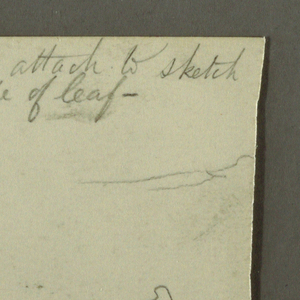 attach to sketch
of leaf-